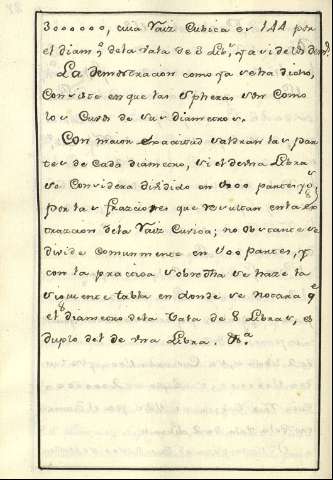 3000000, cuia Raiz Cubica es 144 por
el diam.º dela vala de 3 Lib.ˢ, q̃ a videvds dem.
La Demostracion como ya se ha dicho,
Consiste en que las Spheras son como
los Cuvos de sus diametros.
Con maior exactitud saldran las par
tes de cada diametro, si el de una Libra
se considera dividido en 1000 partes; y
por las fracciones que resultan en la ex
traccion dela Raiz Cuvica; no obstante se
divide comunmente en 100 partes, y
con la practica sobredha se haze la
siguiente tabla en donde se notará q̃
el diametro dela Vala de 8 Libras, es
duplo del de una Libra. &.ª